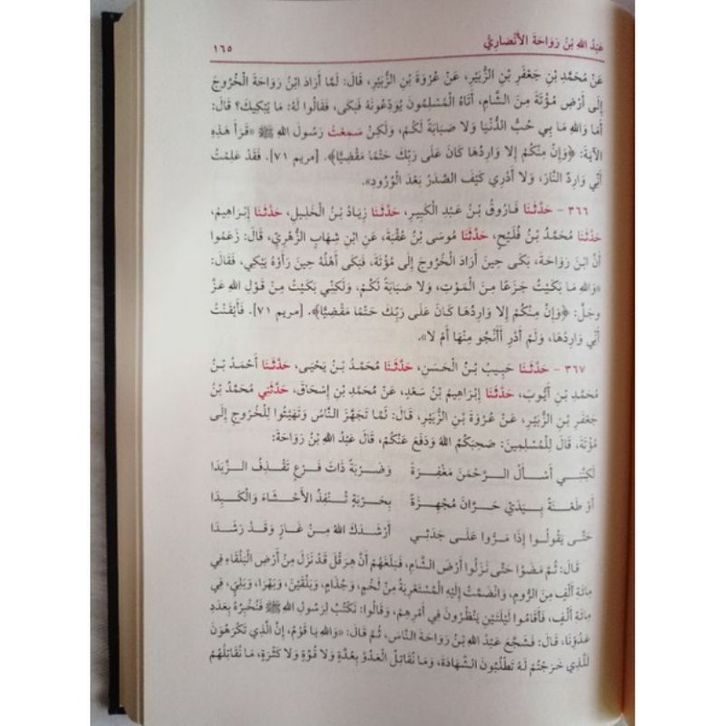 عَبْدُ اللهِ بْنُ رَوَاحَةَ الأَنْصَارِيُّ ١٦٥
عَنْ مُحَمَّدِ بْنِ جَعْفَرِ بْنِ الزُّبَيْرِ، عَنْ عُرْوَةَ بْنِ الزُّبَيْرِ، قَالَ: لَمَّا أَرَادَ ابْنُ رَوَاحَةَ الْخُرُوجَ
إِلَى أَرْضِ مُؤْتَةَ مِنَ الشَّامِ، أَتَاهُ الْمُسْلِمُونَ يُوَدِّعُونَهُ فَبَكَى، فَقَالُوا لَهُ: مَا يُبْكِيكَ؟ قَالَ:
أَمَا وَاللهِ مَا بِي حُبُّ الدُّنْيَا وَلَا صَبَابَةٌ لَكُمْ، وَلَكِنْ سَمِعْتُ رَسُولَ اللهِ ﷺ «قَرَأَ هَذِهِ
الآيَةَ: ﴿وَإِنْ مِنْكُمْ إِلا وَارِدُهَا كَانَ عَلَى رَبِّكَ حَتْمًا مَقْضِيًّا﴾. [مريم ٧١]. فَقَدْ عَلِمْتُ
أَنِّي وَارِدٌ النَّارَ، وَلَا أَدْرِي كَيْفَ الصَّدَرُ بَعْدَ الْوُرُودِ».
٣٦٦ - حَدَّثَنَا فَارُوقُ بْنُ عَبْدِ الْكَبِيرِ، حَدَّثَنَا زِيَادُ بْنُ الْخَلِيلِ، حَدَّثَنَا إِبْرَاهِيمُ،
حَدَّثَنَا مُحَمَّدُ بْنُ فُلَيْحٍ، حَدَّثَنَا مُوسَى بْنُ عُقْبَةَ، عَنِ ابْنِ شِهَابٍ الزُّهْرِيِّ، قَالَ: زَعَمُوا
أَنَّ ابْنَ رَوَاحَةَ، بَكَى حِينَ أَرَادَ الْخُرُوجَ إِلَى مُؤْتَةَ، فَبَكَى أَهْلُهُ حِينَ رَأَوْهُ يَبْكِي، فَقَالَ:
«وَاللهِ مَا بَكَيْتُ جَزَعًا مِنَ الْمَوْتِ، وَلَا صَبَابَةً لَكُمْ، وَلَكِنِّي بَكَيْتُ مِنْ قَوْلِ اللهِ عَزَّ
وَجَلَّ: ﴿وَإِنْ مِنْكُمْ إِلا وَارِدُهَا كَانَ عَلَى رَبِّكَ حَتْمًا مَقْضِيًّا﴾. [مريم ٧١]. فَأَيْقَنْتُ
أَنِّي وَارِدُهَا، وَلَمْ أَدْرِ أَأَنْجُو مِنْهَا أَمْ لَا».
٣٦٧ - حَدَّثَنَا حَبِيبُ بْنُ الْحَسَنِ، حَدَّثَنَا مُحَمَّدُ بْنُ يَحْيَى، حَدَّثَنَا أَحْمَدُ بْنُ
مُحَمَّدِ بْنِ أَيُّوبَ، حَدَّثَنَا إِبْرَاهِيمُ بْنُ سَعْدٍ، عَنْ مُحَمَّدِ بْنِ إِسْحَاقَ، حَدَّثَنِي مُحَمَّدُ بْنُ
جَعْفَرِ بْنِ الزُّبَيْرِ، عَنْ عُرْوَةَ بْنِ الزُّبَيْرِ، قَالَ: لَمَّا تَجَهَّزَ النَّاسُ وَتَهَيَّئُوا لِلْخُرُوجِ إِلَى
مُؤْتَةَ، قَالَ لِلْمُسْلِمِينَ: صَحِبَكُمُ اللهُ وَدَفَعَ عَنْكُمْ، قَالَ عَبْدُ اللهِ بْنُ رَوَاحَةَ:
لَكِنَّنِي أَسْأَلُ الرَّحْمَنَ مَغْفِرَةً وَضَرْبَةً ذَاتَ فَرْعٍ تَقْذِفُ الزَّبَدَا
أَوْ طَعْنَةً بِيَدَيْ حَرَّانَ مُجْهِزَةً بِحَرْبَةٍ تُنْفِذُ الأَحْشَاءَ وَالْكَبِدَا
حَتَّى يَقُولُوا إِذَا مَرُّوا عَلَى جَدَثِي أَرْشَدَكَ اللهُ مِنْ غَازٍ وَقَدْ رَشَدَا
قَالَ: ثُمَّ مَضَوْا حَتَّى نَزَلُوا أَرْضَ الشَّامِ، فَبَلَغَهُمْ أَنَّ هِرَقْلَ قَدْ نَزَلَ مِنْ أَرْضِ الْبَلْقَاءِ فِي
مِائَةِ أَلْفٍ مِنَ الرُّومِ، وَانْضَمَّتْ إِلَيْهِ الْمُسْتَعْرِبَةُ مِنْ لَخْمٍ، وَجُذَامٍ، وَبَلْقَيْنِ، وَبَهْرَا، وَبَلِيٍّ، فِي
مِائَةِ أَلْفٍ، فَأَقَامُوا لَيْلَتَيْنِ يَنْظُرُونَ فِي أَمْرِهِمْ، وَقَالُوا: نَكْتُبُ لِرَسُولِ اللهِ ﷺ فَنُخْبِرُهُ بِعَدَدِ
عَدُوِّنَا، قَالَ: فَشَجَّعَ عَبْدُ اللهِ بْنُ رَوَاحَةَ النَّاسَ، ثُمَّ قَالَ: «وَاللهِ يَا قَوْمُ، إِنَّ الَّذِي تَكْرَهُونَ
لَلَّذِي خَرَجْتُمْ لَهُ تَطْلُبُونَ الشَّهَادَةَ، وَمَا نُقَاتِلُ الْعَدُوَّ بِعُدَّةٍ وَلَا قُوَّةٍ وَلَا كَثْرَةٍ، مَا نُقَاتِلُهُمْ